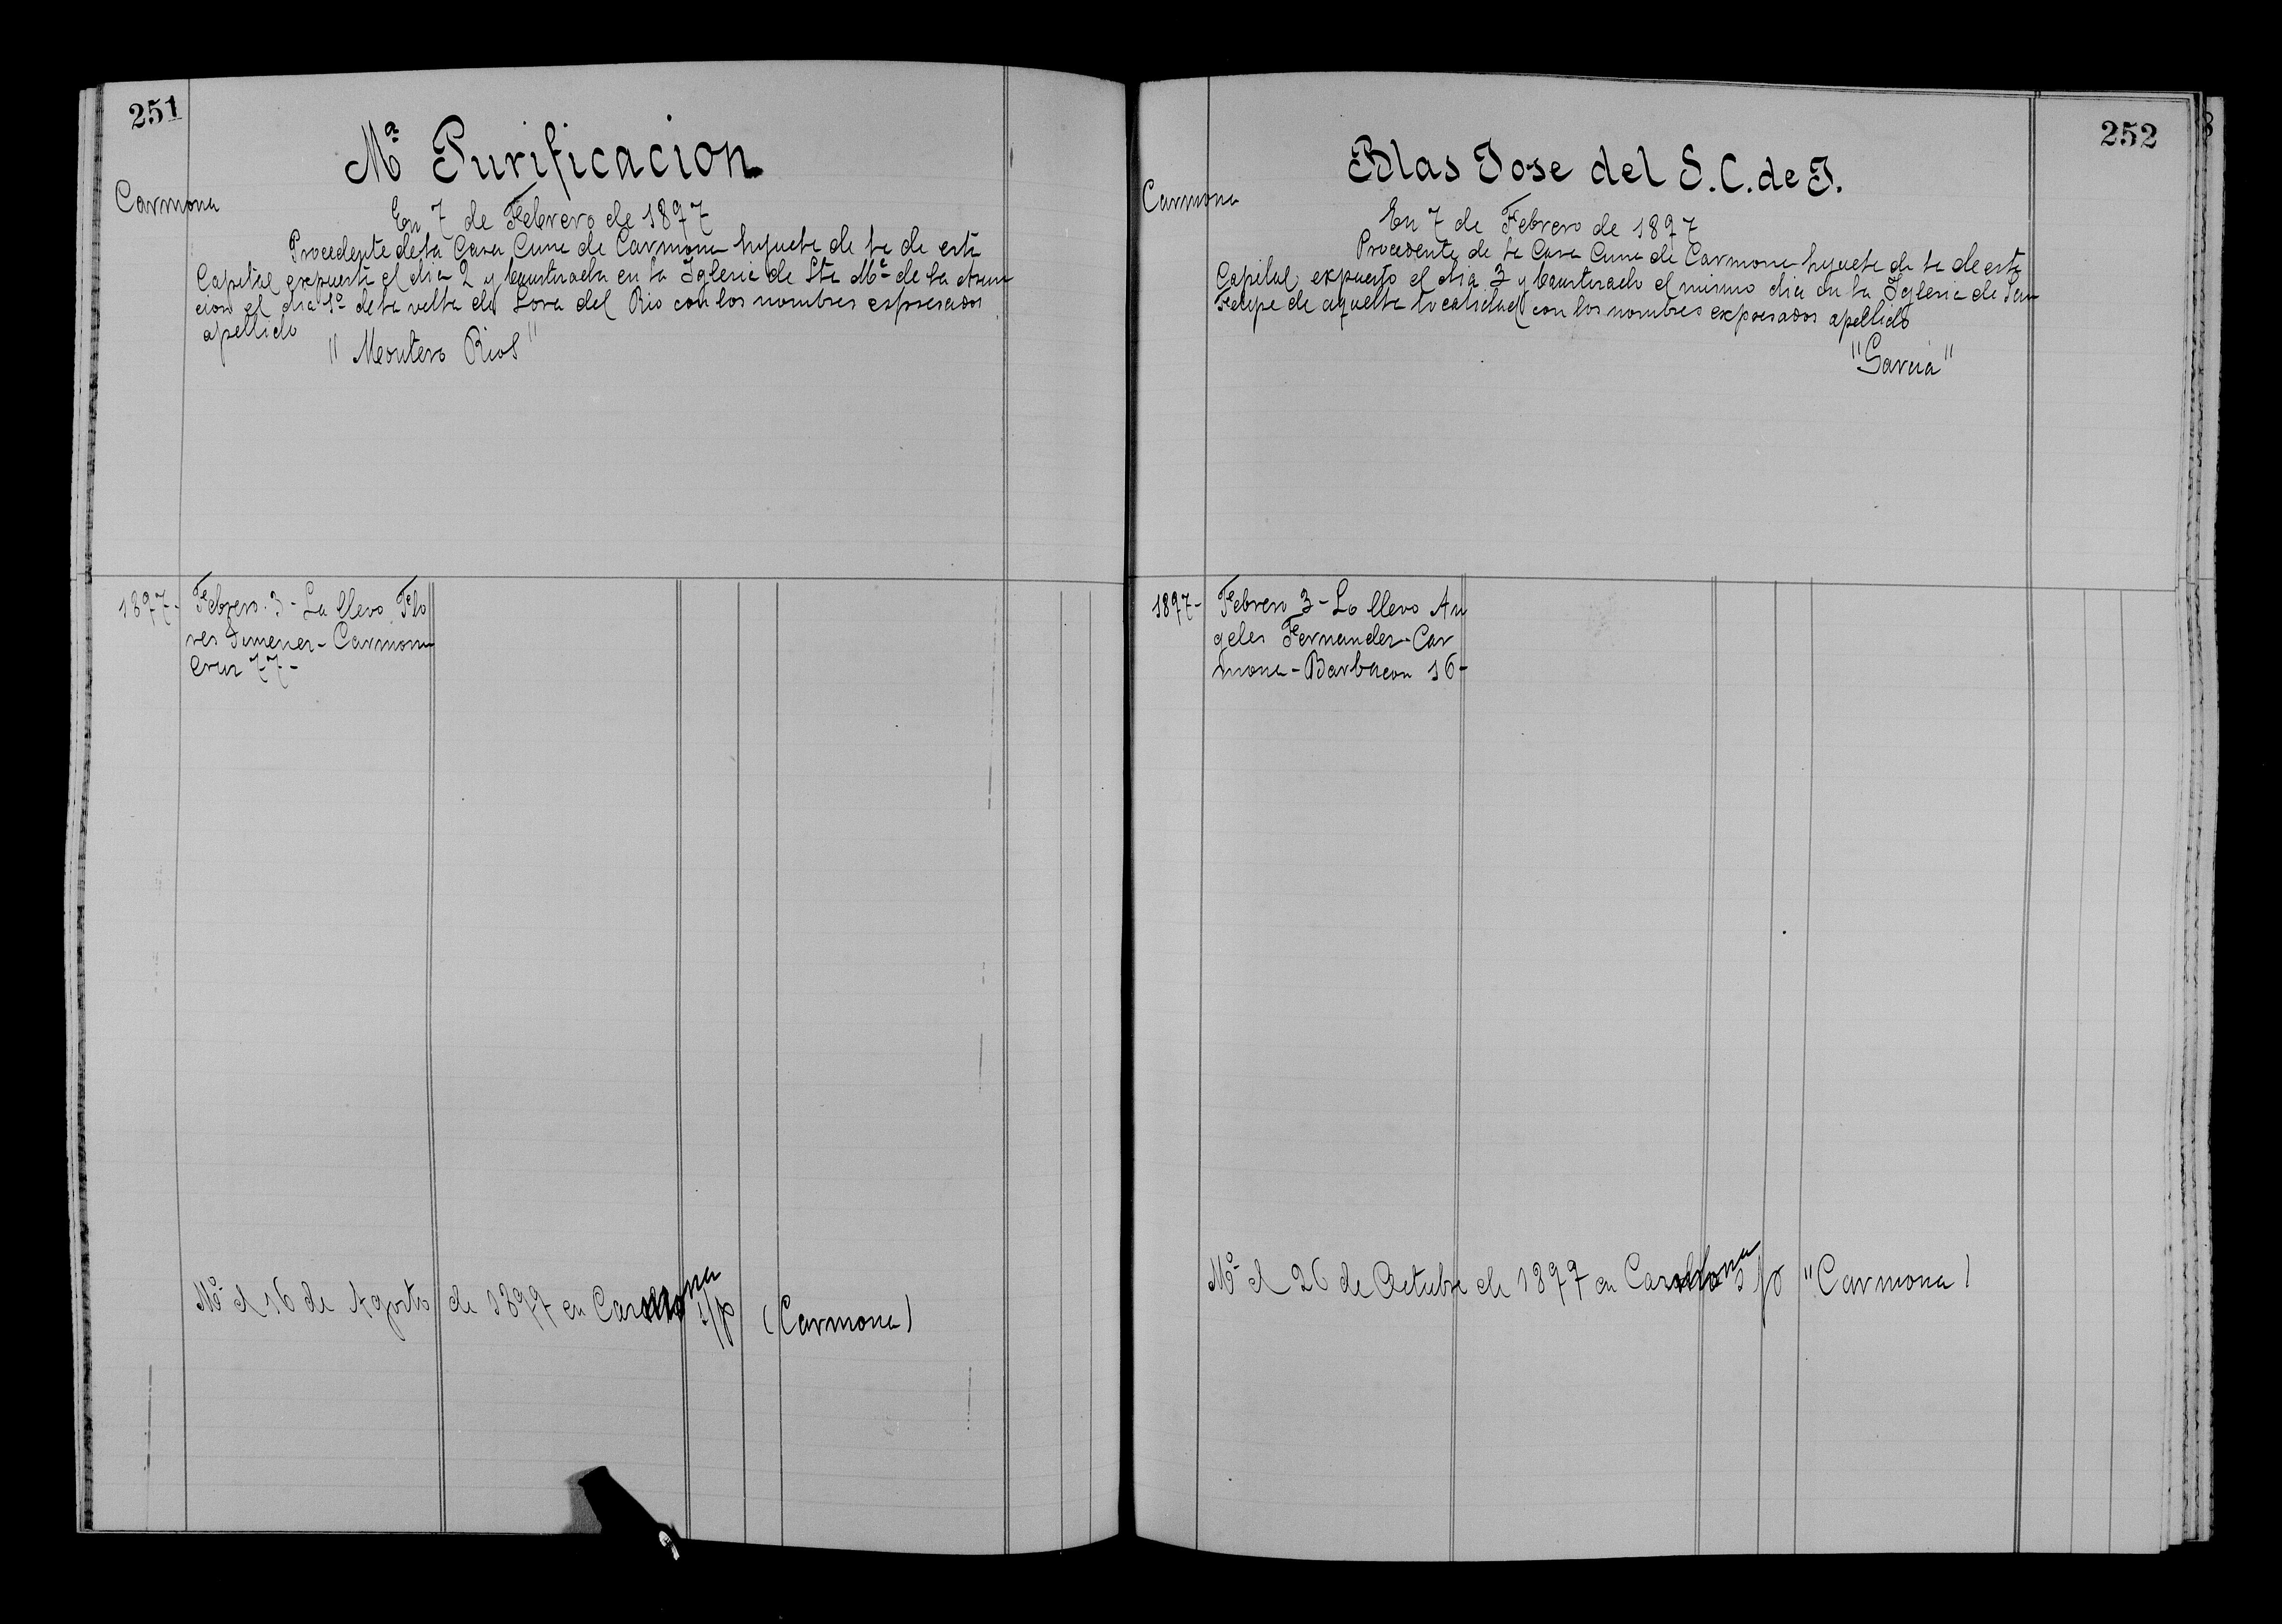 251
Mª Purificacion
Carmona
En 7 de Febrero de 1897
Procedente de la Casa Cuna de Carmona hijuela de la de esta
Capital expuesta el dia 2 y bautizada en la Iglesia de Sta Mª de la Asun
cion el dia 1º de la villa de Lora del Rio con los nombres espresados
apellido
"Montero Rios"
1897- Febrero 3-La llevo Flo
res Jimenez-Carmona
Cruz 77-
Mº el 16 de Agosto de 1897 en Carmona s/p (Carmona)
252
Blas Jose del S. C. de J.
Carmona
En 7 de Febrero de 1897
Procedente de la Casa Cuna de Carmona hijuela de la de esta
Capital expuesto el dia 3 y bautizado el mismo dia en la Iglesia de San
Felipe de aquella localidad con los nombres expresados apellido
"Garcia"
1897- Febrero 3-Lo llevo An
geles Fernandez-Car
mona-Barbacon 16-
Mº el 26 de Octubre de 1897 en Carmona s/p "Carmona)